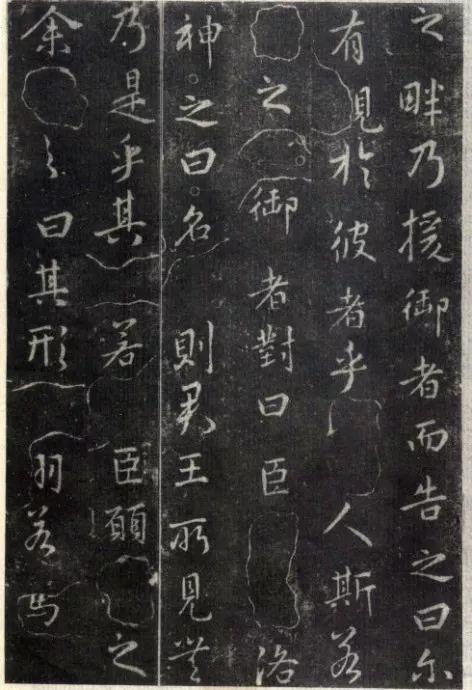 之畔乃援御者而告之曰尒
有見於彼者乎人斯若
之御者對曰臣洛
神之曰名則君王所見無
乃是乎其若臣願之
余之曰其形羽若馬